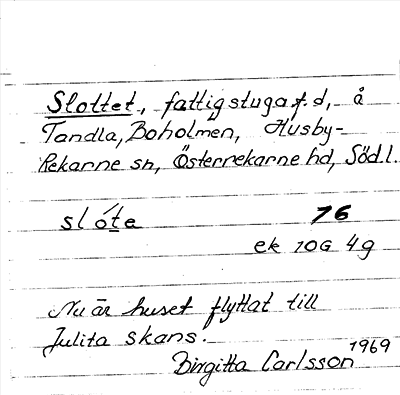 Slottet, fattigstuga f. d, å
Tandla, Boholmen, Husby-
Rekarne sn, Österrekarne hd, Södl.
slóte 76
ek 10G 4g
Nu är huset flyttat till
Julita skans.
Birgitta Carlsson 1969